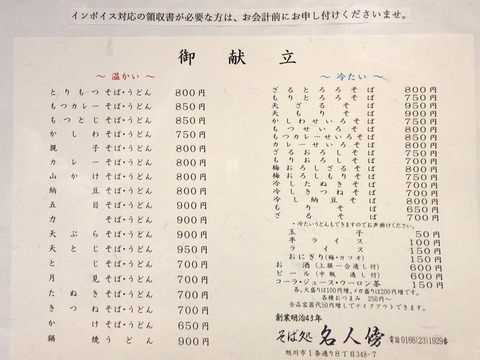 インボイス対応の領収書が必要な方は、お会計前にお申し付けくださいませ。
御献立
～温かい～
とりもつそば・うどん 800円
もつカレーそば・うどん 850円
もつとじそば・うどん 850円
かしわそば・うどん 750円
親子そば・うどん 800円
カレーそば・うどん 800円
山かけそば・うどん 800円
納豆そば・うどん 800円
五目そば・うどん 900円
力そば・うどん 900円
天ぷらそば・うどん 900円
天とじそば・うどん 950円
とじそば・うどん 700円
月見そば・うどん 700円
たぬきそば・うどん 700円
きつねそば・うどん 700円
かけそば・うどん 650円
鍋焼うどん 900円
～冷たい～
ざるとろろそば 800円
もりとろろそば 750円
天ざるそば 950円
天もりそば 900円
かしわせいろそば 750円
もつせいろそば
もつカレーせいろそば 850円
カレーせいろそば
ざるおろしそば 750円
もりおろしそば 700円
梅おろしざるそば
梅おろしもりそば 750円
冷したぬきそば
冷しきつねそば
冷し納豆そば
もりそば
ざるそば 700円
・冷たいうどんもできますのでお声掛けください。
玉子 50円
半ライス 100円
ライス 150円
おにぎり(梅・カツオ) 100円
お酒(上撰一合通し付) 600円
ビール(中瓶 通し付) 600円
コーラ・ジュース・ウーロン茶 150円
各、大盛りは100円増、メガ盛りは200円増です。
各種おつまみ 250円～
全品容器代50円増しでテイクアウトできます。
創業明治43年
そば処 名人傍 電話0166(23)1929番
旭川市1条通り8丁目348-7